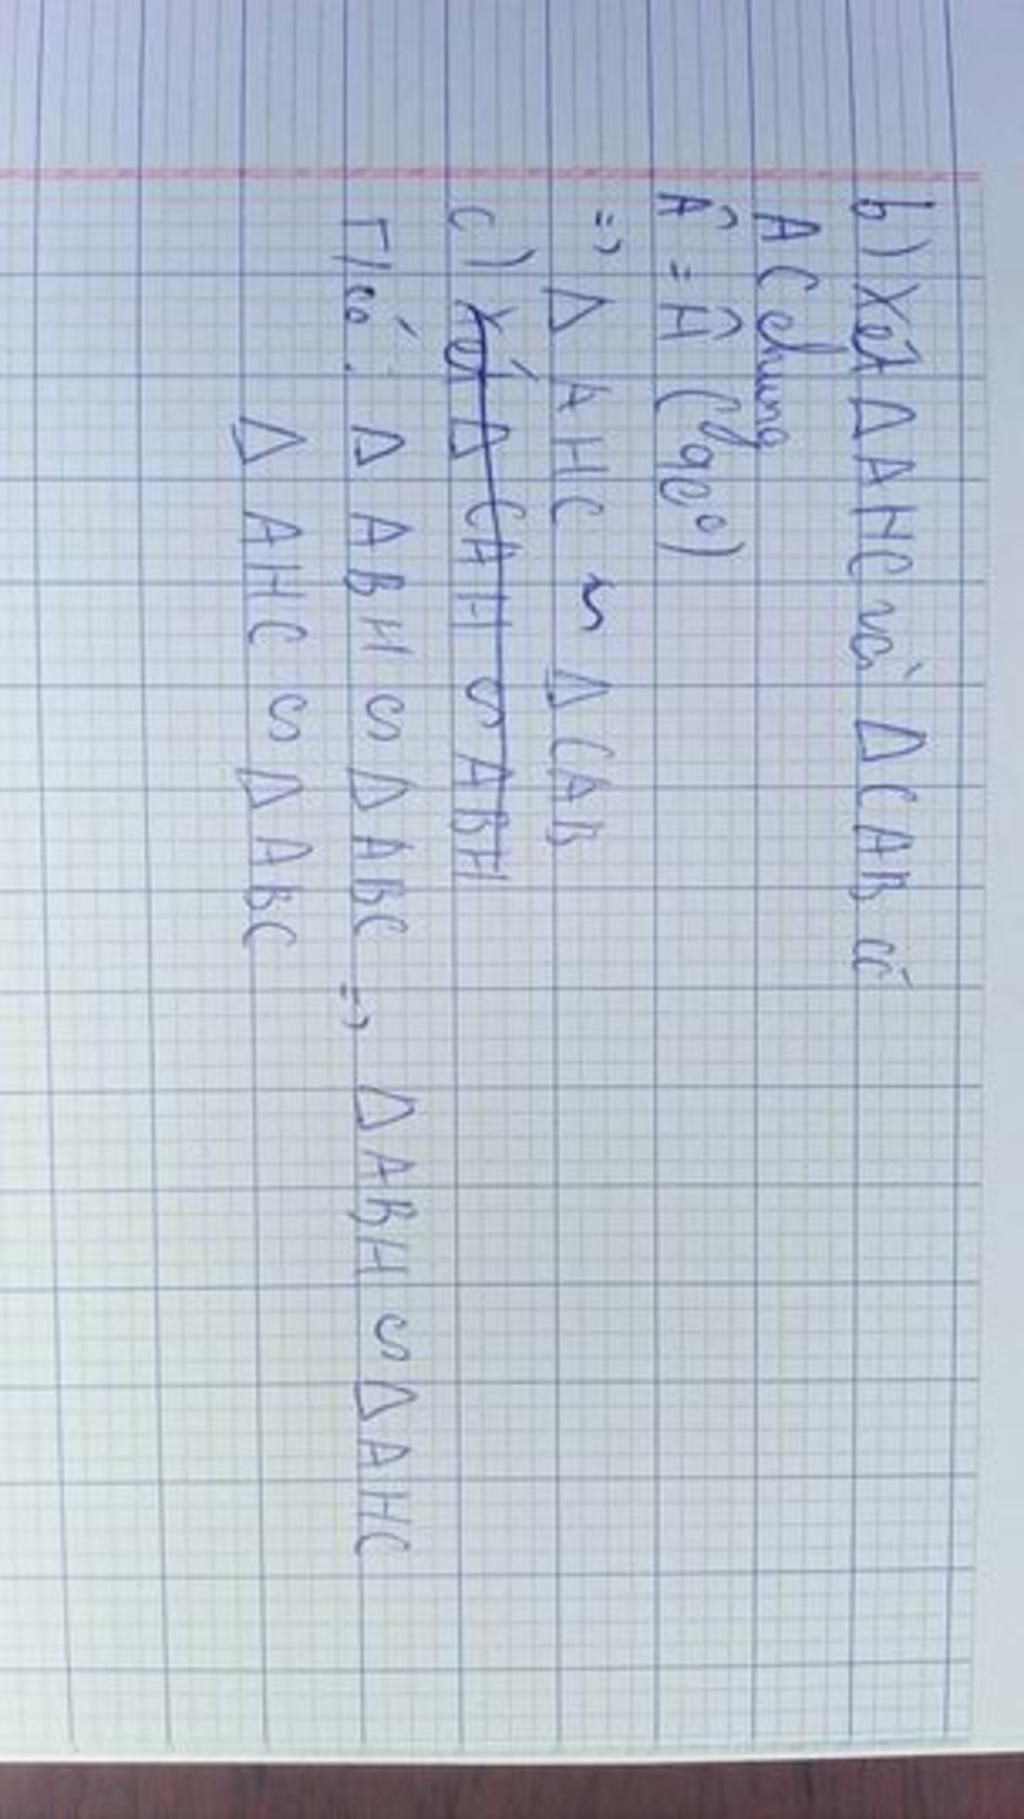 b) Xét Δ AHC và Δ CAB có
AC chung
Â = Ĥ (90°)
=> Δ AHC ~ Δ CAB
c) Xét Δ CAH ᔕ ABH
T/có: Δ ABH ᔕ Δ ABC => Δ ABH ᔕ Δ AHC
Δ AHC ᔕ Δ ABC